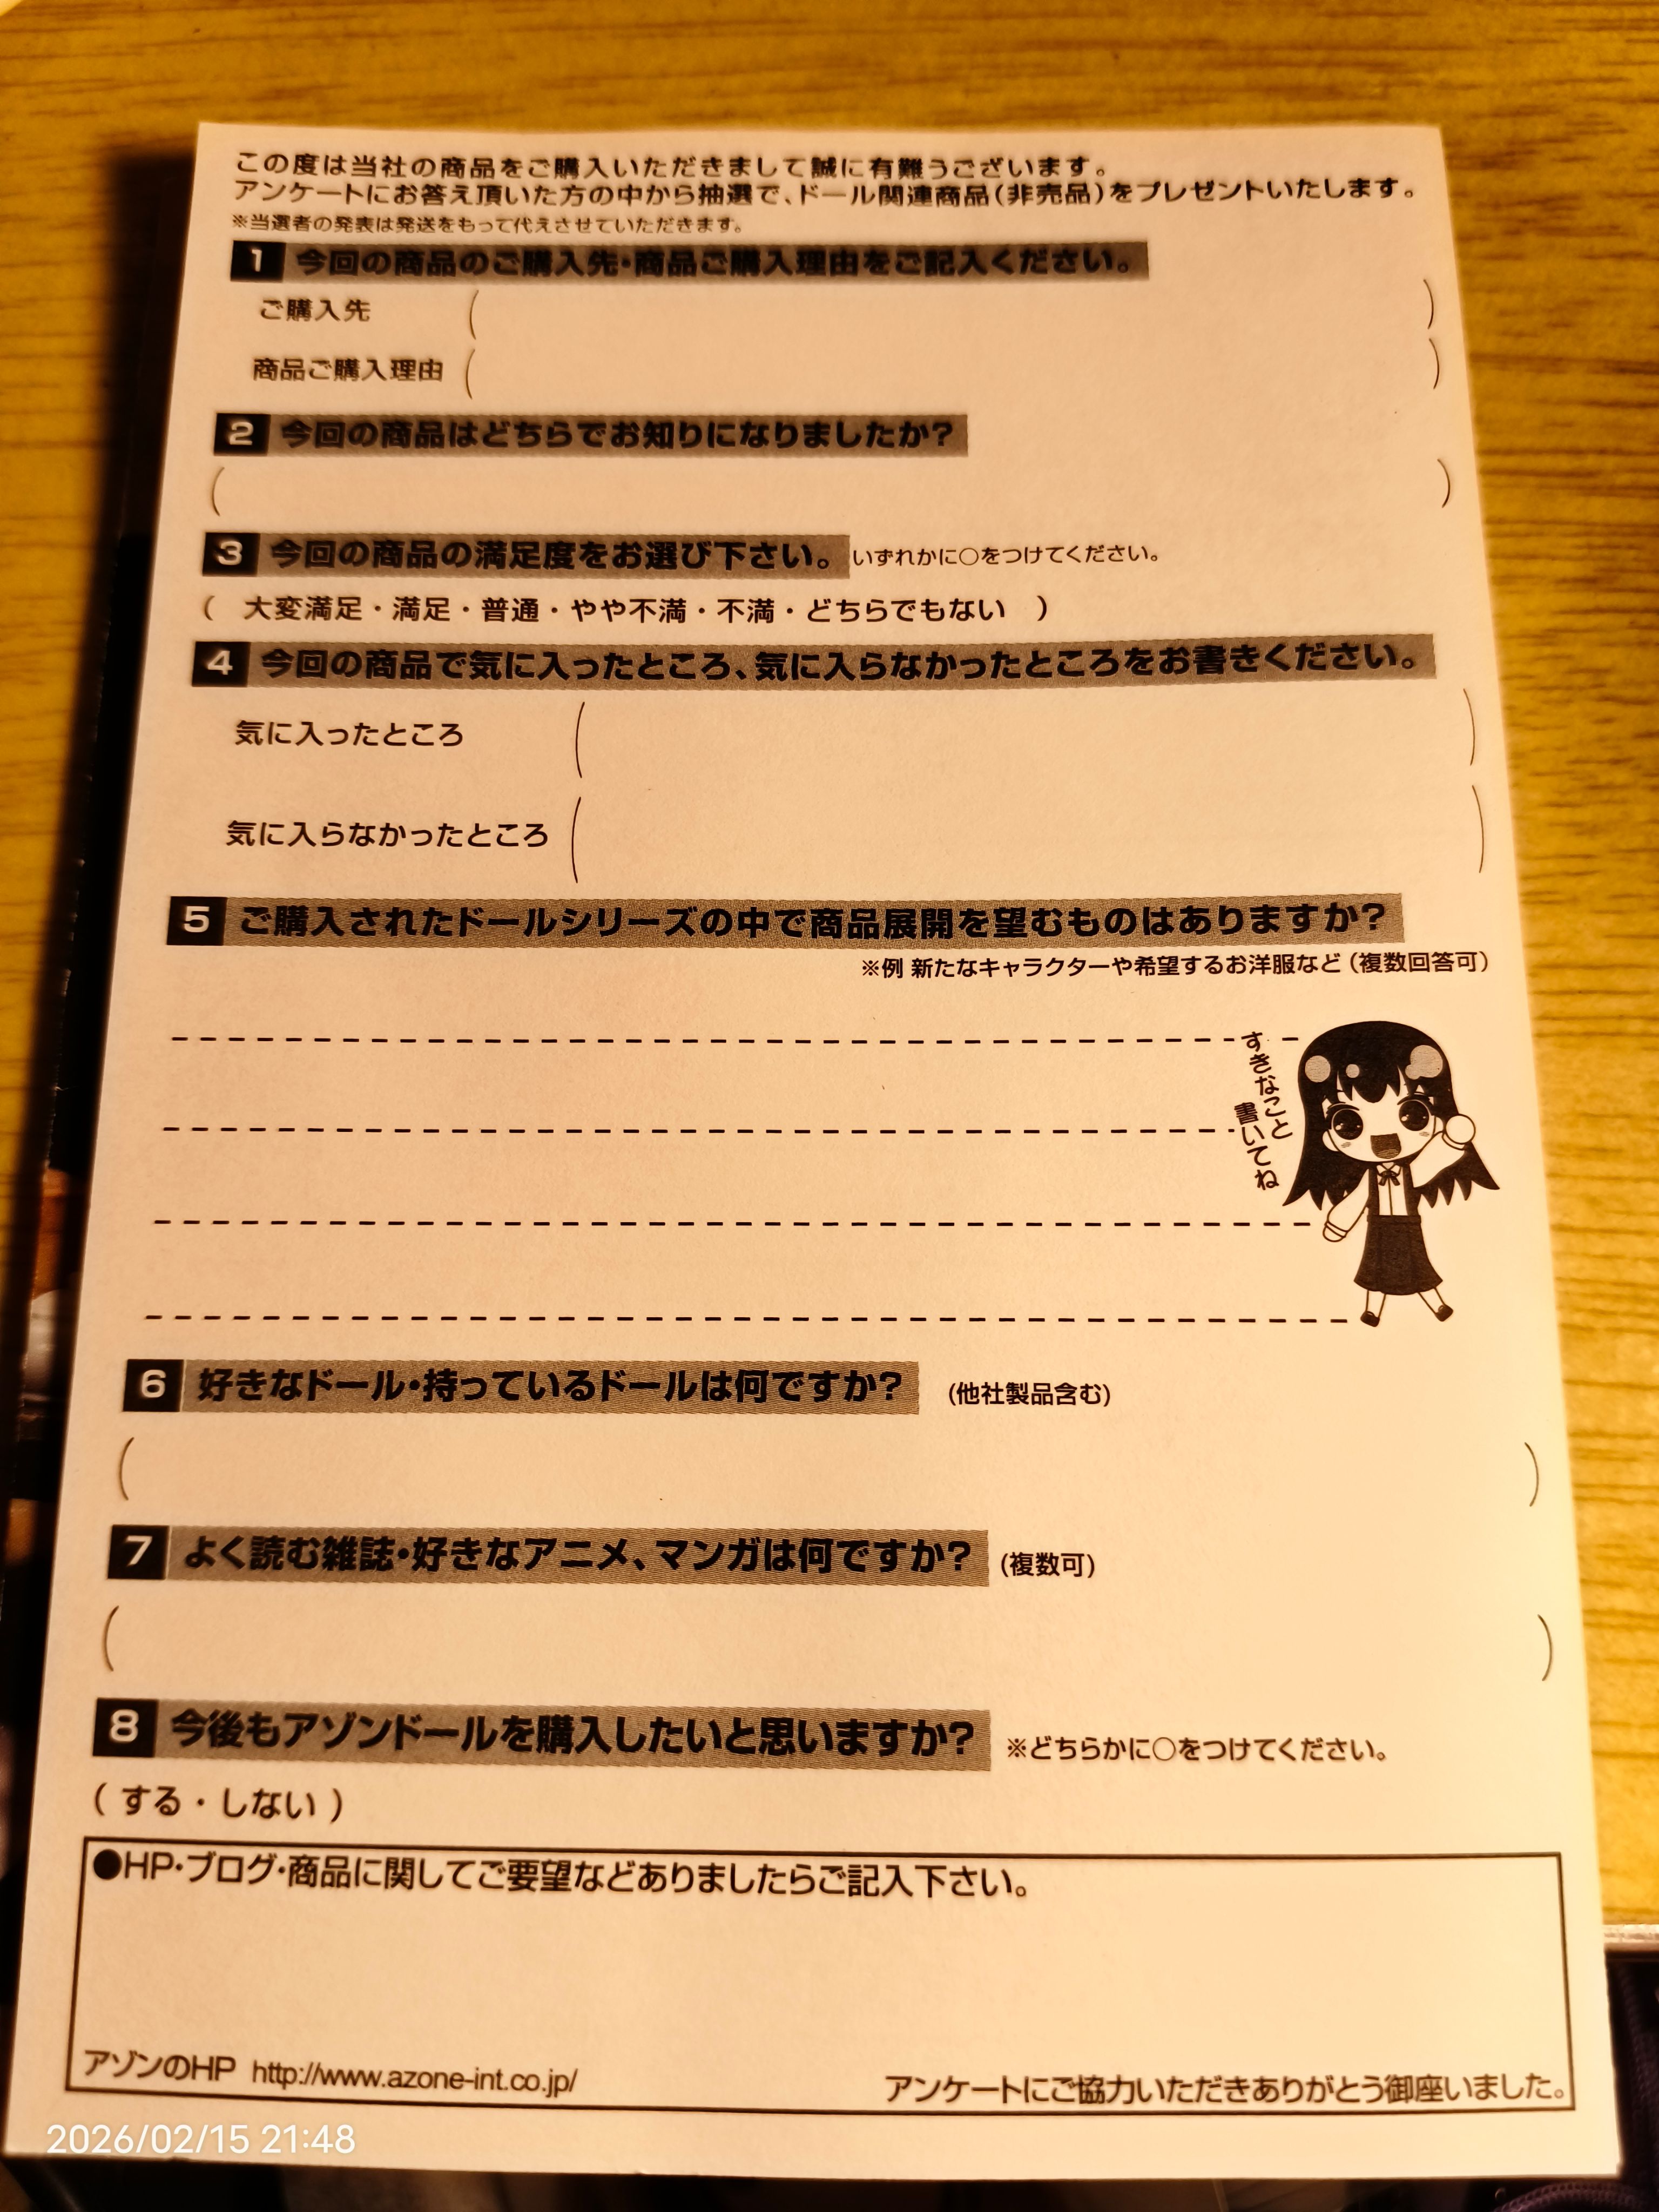 この度は当社の商品をご購入いただきまして誠に有難うございます。
アンケートにお答え頂いた方の中から抽選で、ドール関連商品(非売品)をプレゼントいたします。
※当選者の発表は発送をもって代えさせていただきます。
1 今回の商品のご購入先・商品ご購入理由をご記入ください。
ご購入先 ( )
商品ご購入理由 ( )
2 今回の商品はどちらでお知りになりましたか?
( )
3 今回の商品の満足度をお選び下さい。 いずれかに○をつけてください。
( 大変満足・満足・普通・やや不満・不満・どちらでもない )
4 今回の商品で気に入ったところ、気に入らなかったところをお書きください。
気に入ったところ ( )
気に入らなかったところ ( )
5 ご購入されたドールシリーズの中で商品展開を望むものはありますか?
※例 新たなキャラクターや希望するお洋服など(複数回答可)
すきなこと
書いてね
6 好きなドール・持っているドールは何ですか? (他社製品含む)
( )
7 よく読む雑誌・好きなアニメ、マンガは何ですか? (複数可)
( )
8 今後もアゾンドールを購入したいと思いますか? ※どちらかに○をつけてください。
( する・しない )
●HP・ブログ・商品に関してご要望などありましたらご記入下さい。
アゾンのHP http://www.azone-int.co.jp/
アンケートにご協力いただきありがとう御座いました。
2026/02/15 21:48